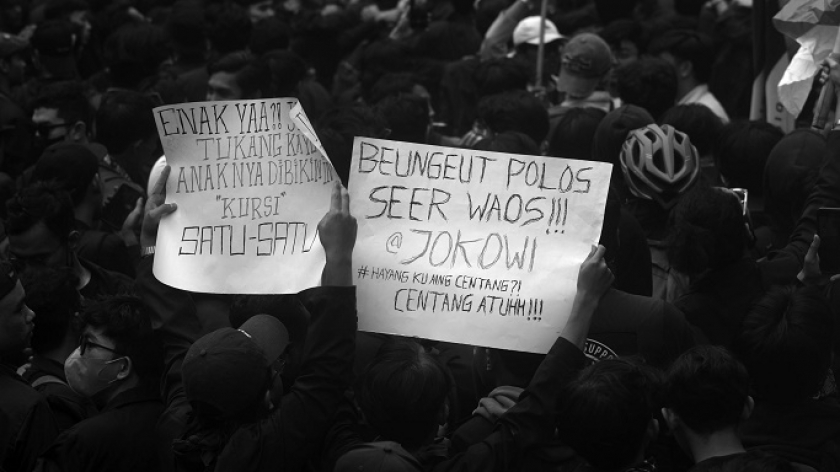 ENAK YAA?!
TUKANG
ANAKNYA DIBIKIN
"KURSI"
SATU-SATU
BEUNGEUT POLOS
SEER WAOS!!!
@JOKOWI
#HAYANG KU AING CENTANG?!
CENTANG ATUHH!!!
SUPP